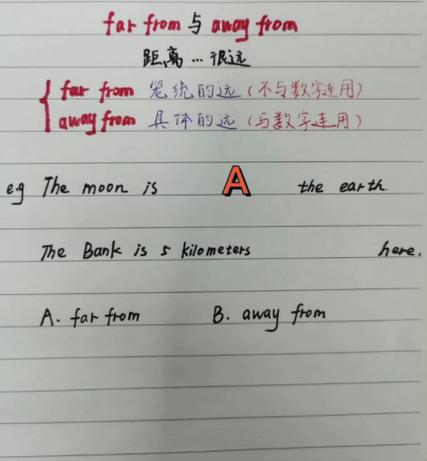 far from 与 away from
距离…很远
far from 笼统的远（不与数字连用）
away from 具体的远（与数字连用）
eg The moon is A the earth.
The Bank is 5 kilometers here.
A. far from B. away from